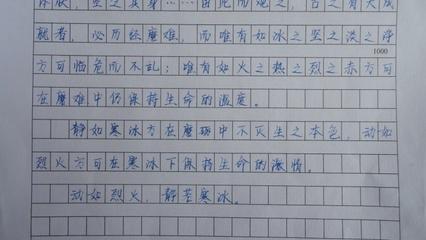 坚之其身……由此而观之，古之有大成
就者，必历经磨难，而唯有如冰之坚之洪之净
1000
方可临危而不乱；唯有如火之热之烈之赤方可
在磨难中仍保持生命的温度。
静如寒冰方在磨砺中不灭生之本色，动如
烈火方可在寒冰下保持生命的激情。
动如烈火，静若寒冰。